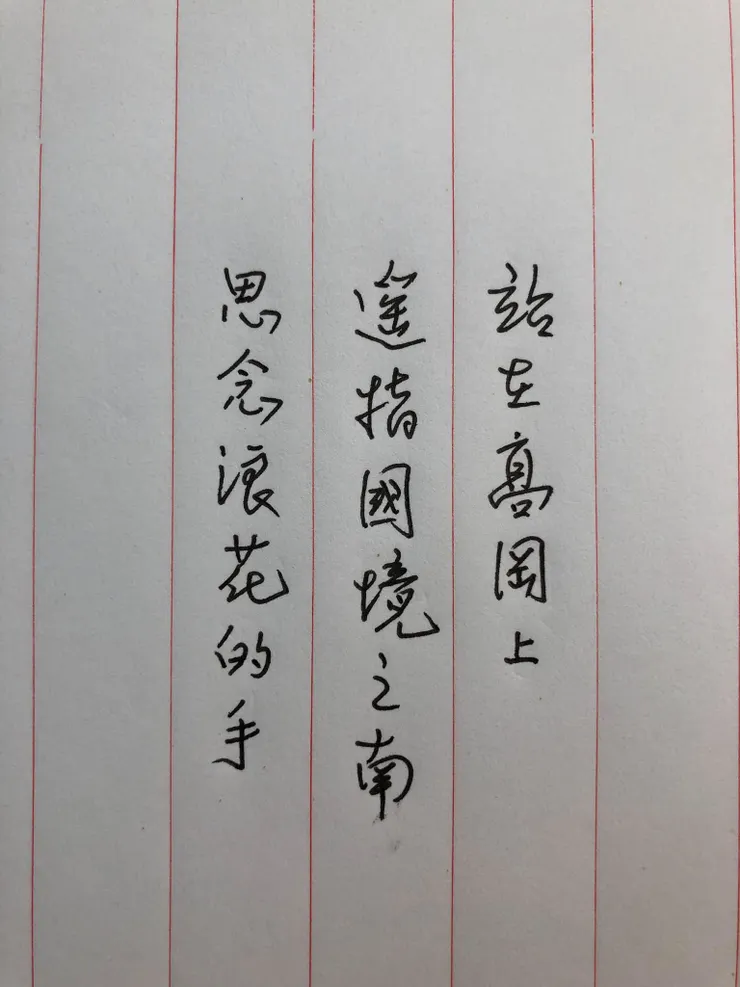 站在高岡上
遙指國境之南
思念浪花的手